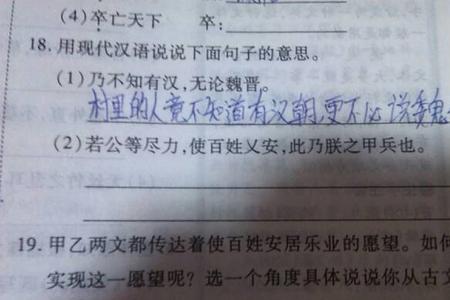 (4)卒亡天下 卒:
18.用现代汉语说说下面句子的意思。
(1)乃不知有汉,无论魏晋。
村里的人竟不知道有汉朝,更不必说魏
(2)若公等尽力,使百姓乂安,此乃朕之甲兵也。
19.甲乙两文都传达着使百姓安居乐业的愿望。如何
实现这一愿望呢?选一个角度具体说说你从古文